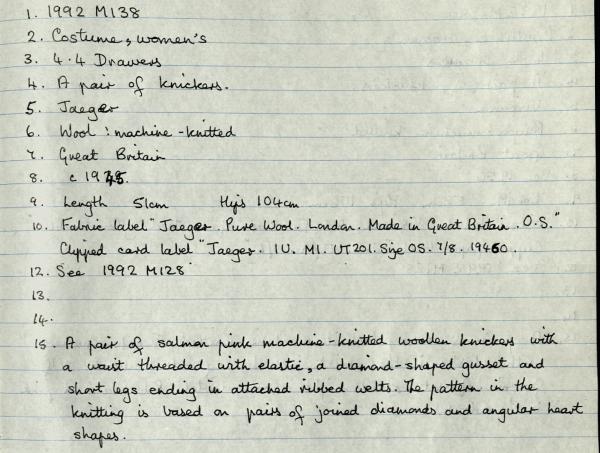 1. 1992 M138
2. Costume, women's
3. 4.4 Drawers
4. A pair of knickers.
5. Jaeger
6. Wool : machine-knitted
7. Great Britain
8. c 1945.
9. Length 51cm Hips 104cm
10. Fabric label "Jaeger. Pure Wool. London. Made in Great Britain. O.S."
Clipped card label "Jaeger. 1U. M1. UT201. Size OS. 7/8.
12. See 1992 M128
13.
14.
15. A pair of salmon pink machine-knitted woollen knickers with
a waist threaded with elastic, a diamond-shaped gusset and
short legs ending in attached ribbed welts. The pattern in the
knitting is based on pairs of joined diamonds and angular heart
shapes.